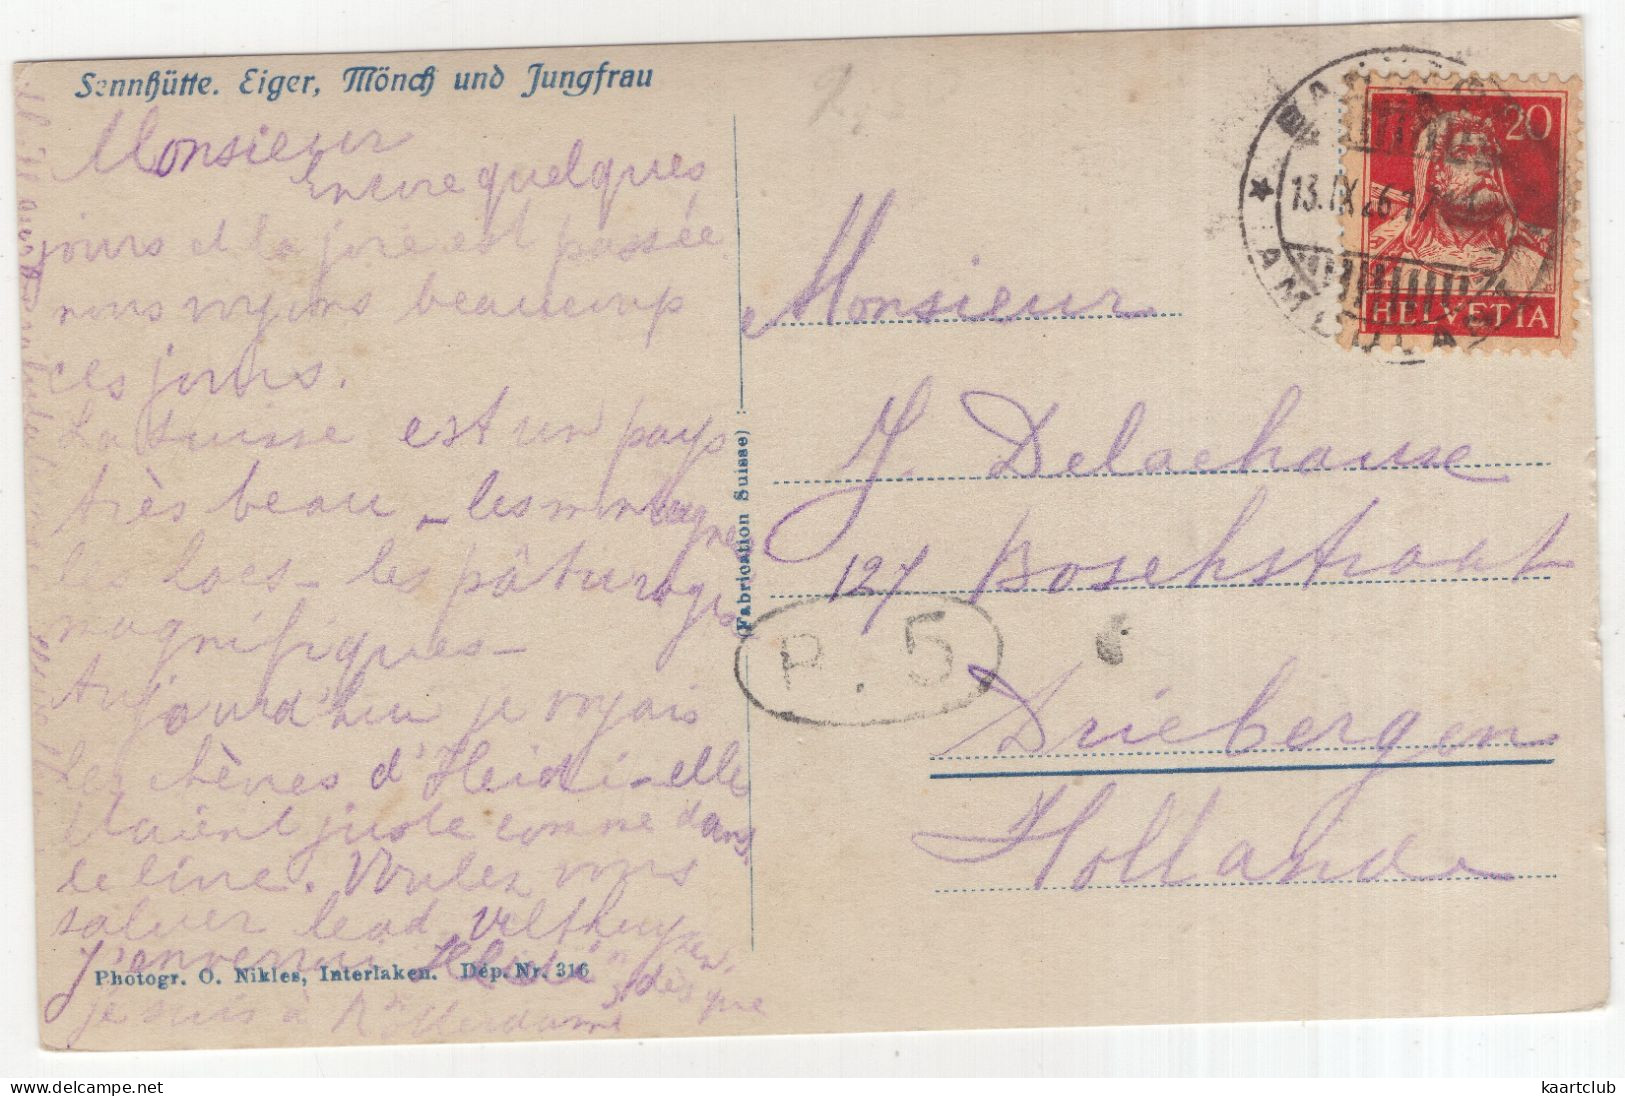 Sennhütte. Eiger, Mönch und Jungfrau
Monsieur
Encore quelques
jours et la joie est passée
nous voyons beaucoup
ces jours.
La Suisse est un pays
très beau – les montagnes
les lacs – les pâturages
magnifiques –
Aujourd'hui je voyais
les chèvres d'Heidi – elle
étaient juste comme dans
le livre. Voulez vous
saluer Mead Velthuyzen.
J'enverrai
dès que
je suis à Rotterdam
Photogr. O. Nikles, Interlaken. Dép. Nr. 316
(Fabrication Suisse)
13.IX.26.17
20
HELVETIA
Monsieur
J. Delachause
127 Boschstraat
Driebergen
Hollande
P. 5
kaartclub